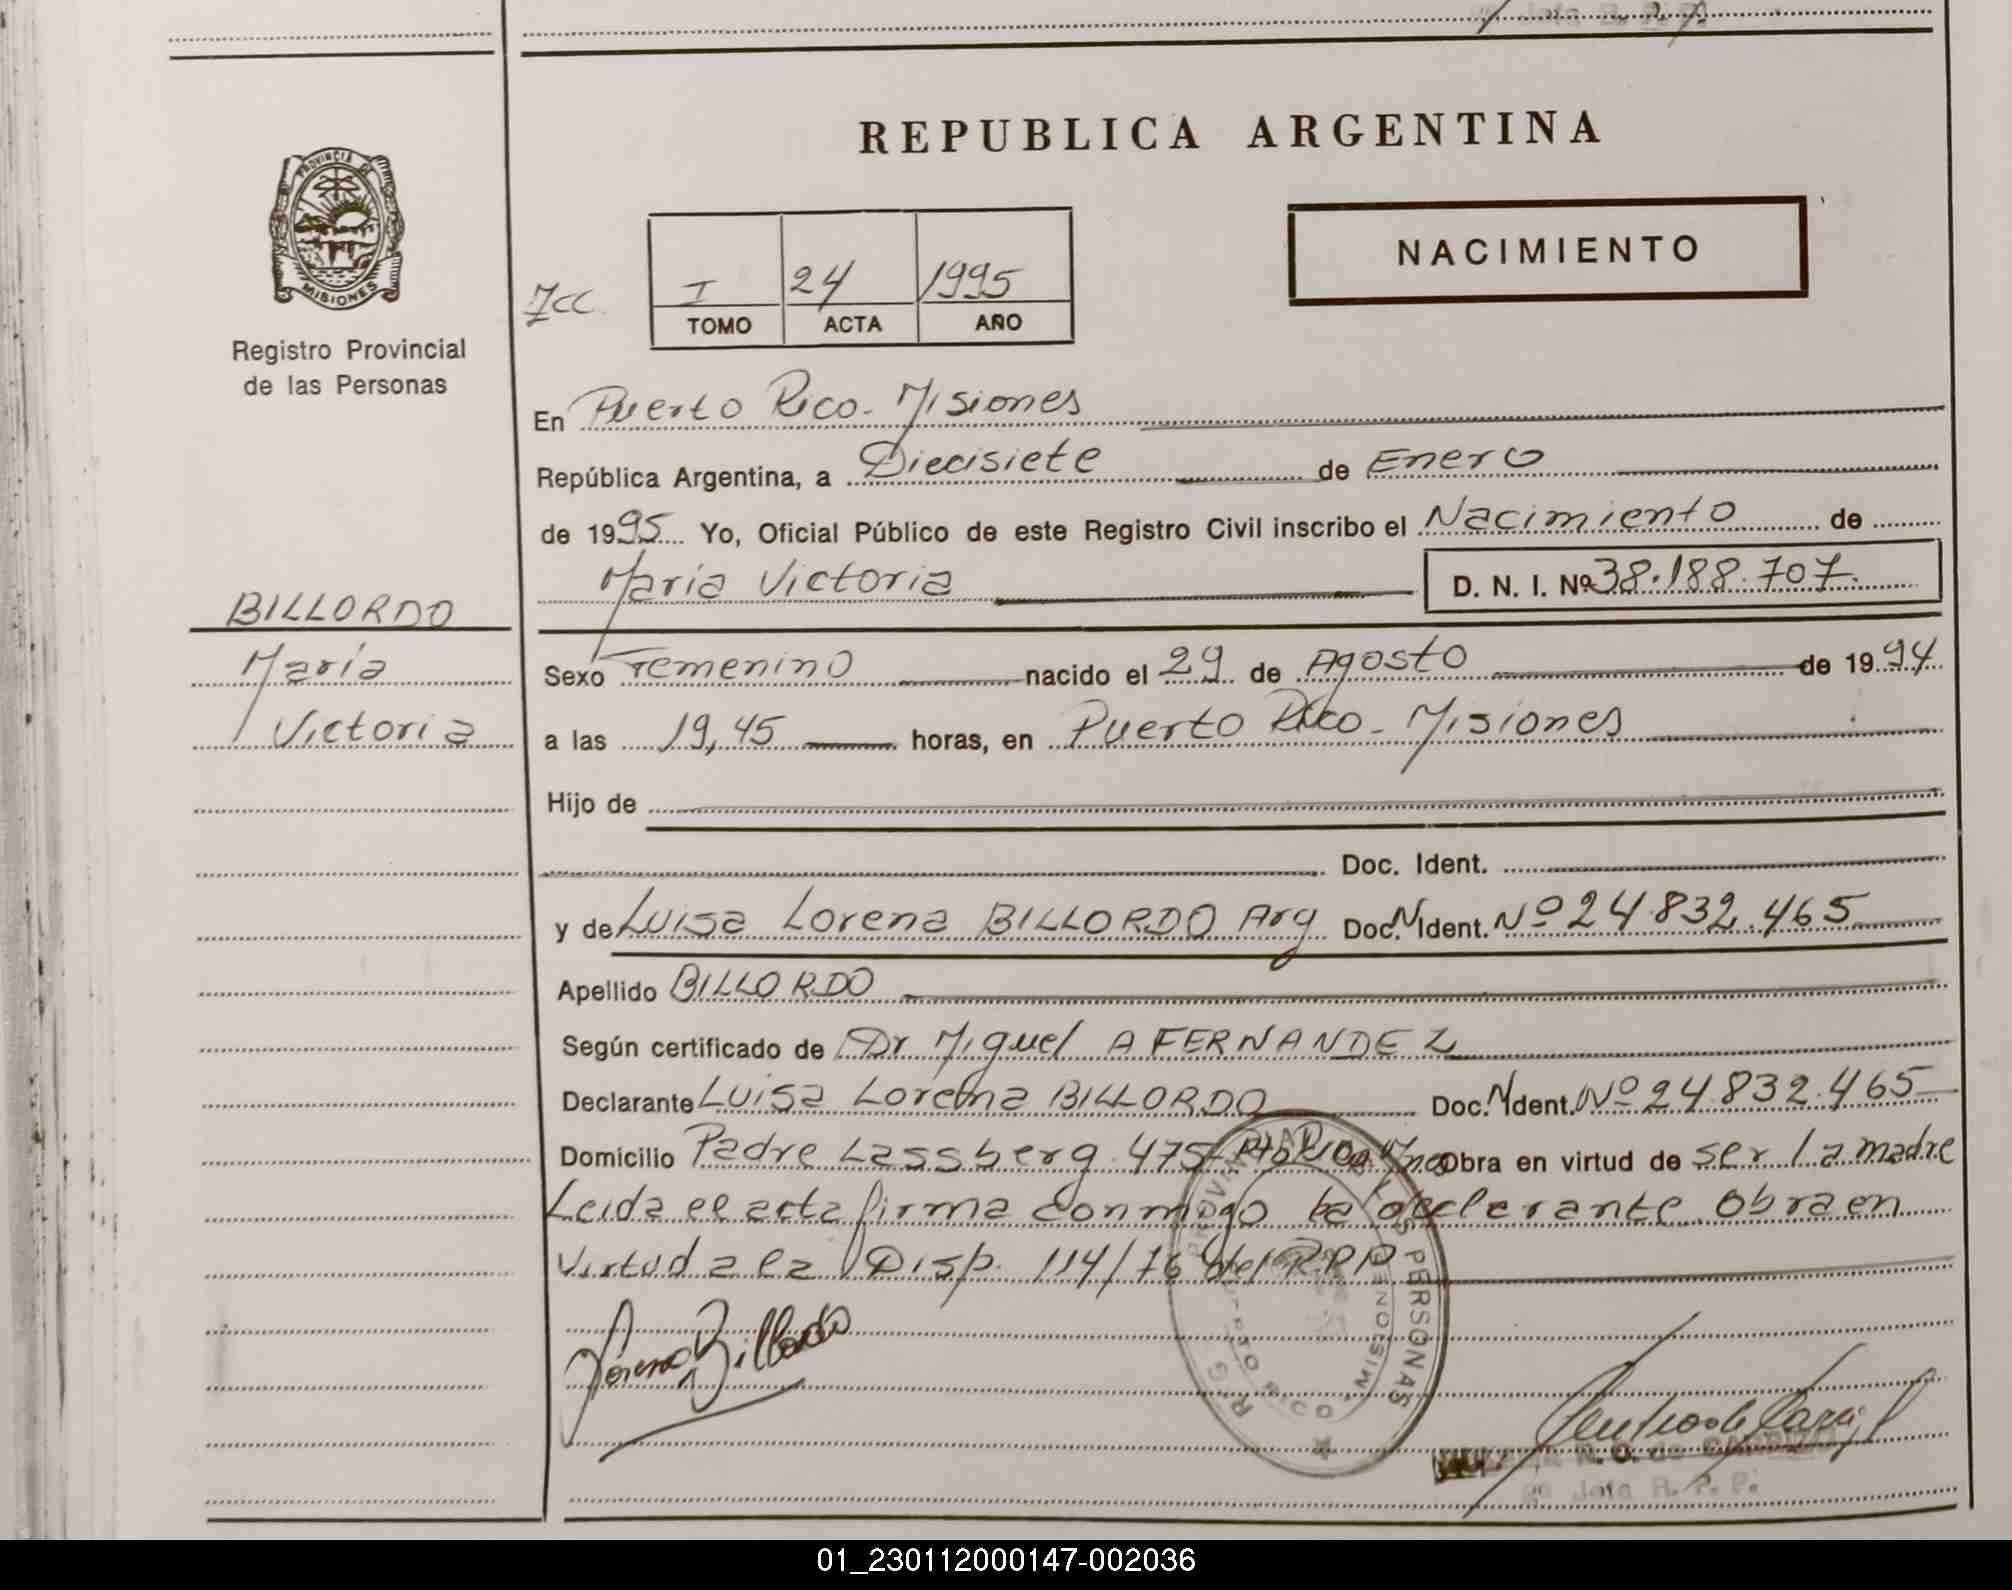 REPUBLICA ARGENTINA
PROVINCIA DE
MISIONES
Registro Provincial
de las Personas
NACIMIENTO
I 24 1995
TOMO ACTA AÑO
En Puerto Rico. Misiones
República Argentina, a Diecisiete de Enero
de 1995 Yo, Oficial Público de este Registro Civil inscribo el Nacimiento de
María Victoria D. N. I. Nº 38.188.707.
BILLORDO
María
Victoria
Sexo Femenino nacido el 29 de Agosto de 1994
a las 19,45 horas, en Puerto Rico. Misiones
Hijo de
Doc. Ident.
y de Luisa Lorena BILLORDO Arg Doc. N Ident. Nº 24.832.465
Apellido BILLORDO
Según certificado de Dr Miguel A FERNANDEZ
Declarante Luisa Lorena BILLORDO Doc. N Ident. Nº 24.832.465
Domicilio Padre Lassberg 475 Pto Rico Mnes Obra en virtud de ser la madre
Leida el acta firma conmigo la declarante Obra en
Virtud a la Disp. 114/76 del RPP
Lorena Billordo
LAS PERSONAS
PUERTO RICO
MISIONES
R. O. de
Jefa R. P. P.
01_230112000147-002036